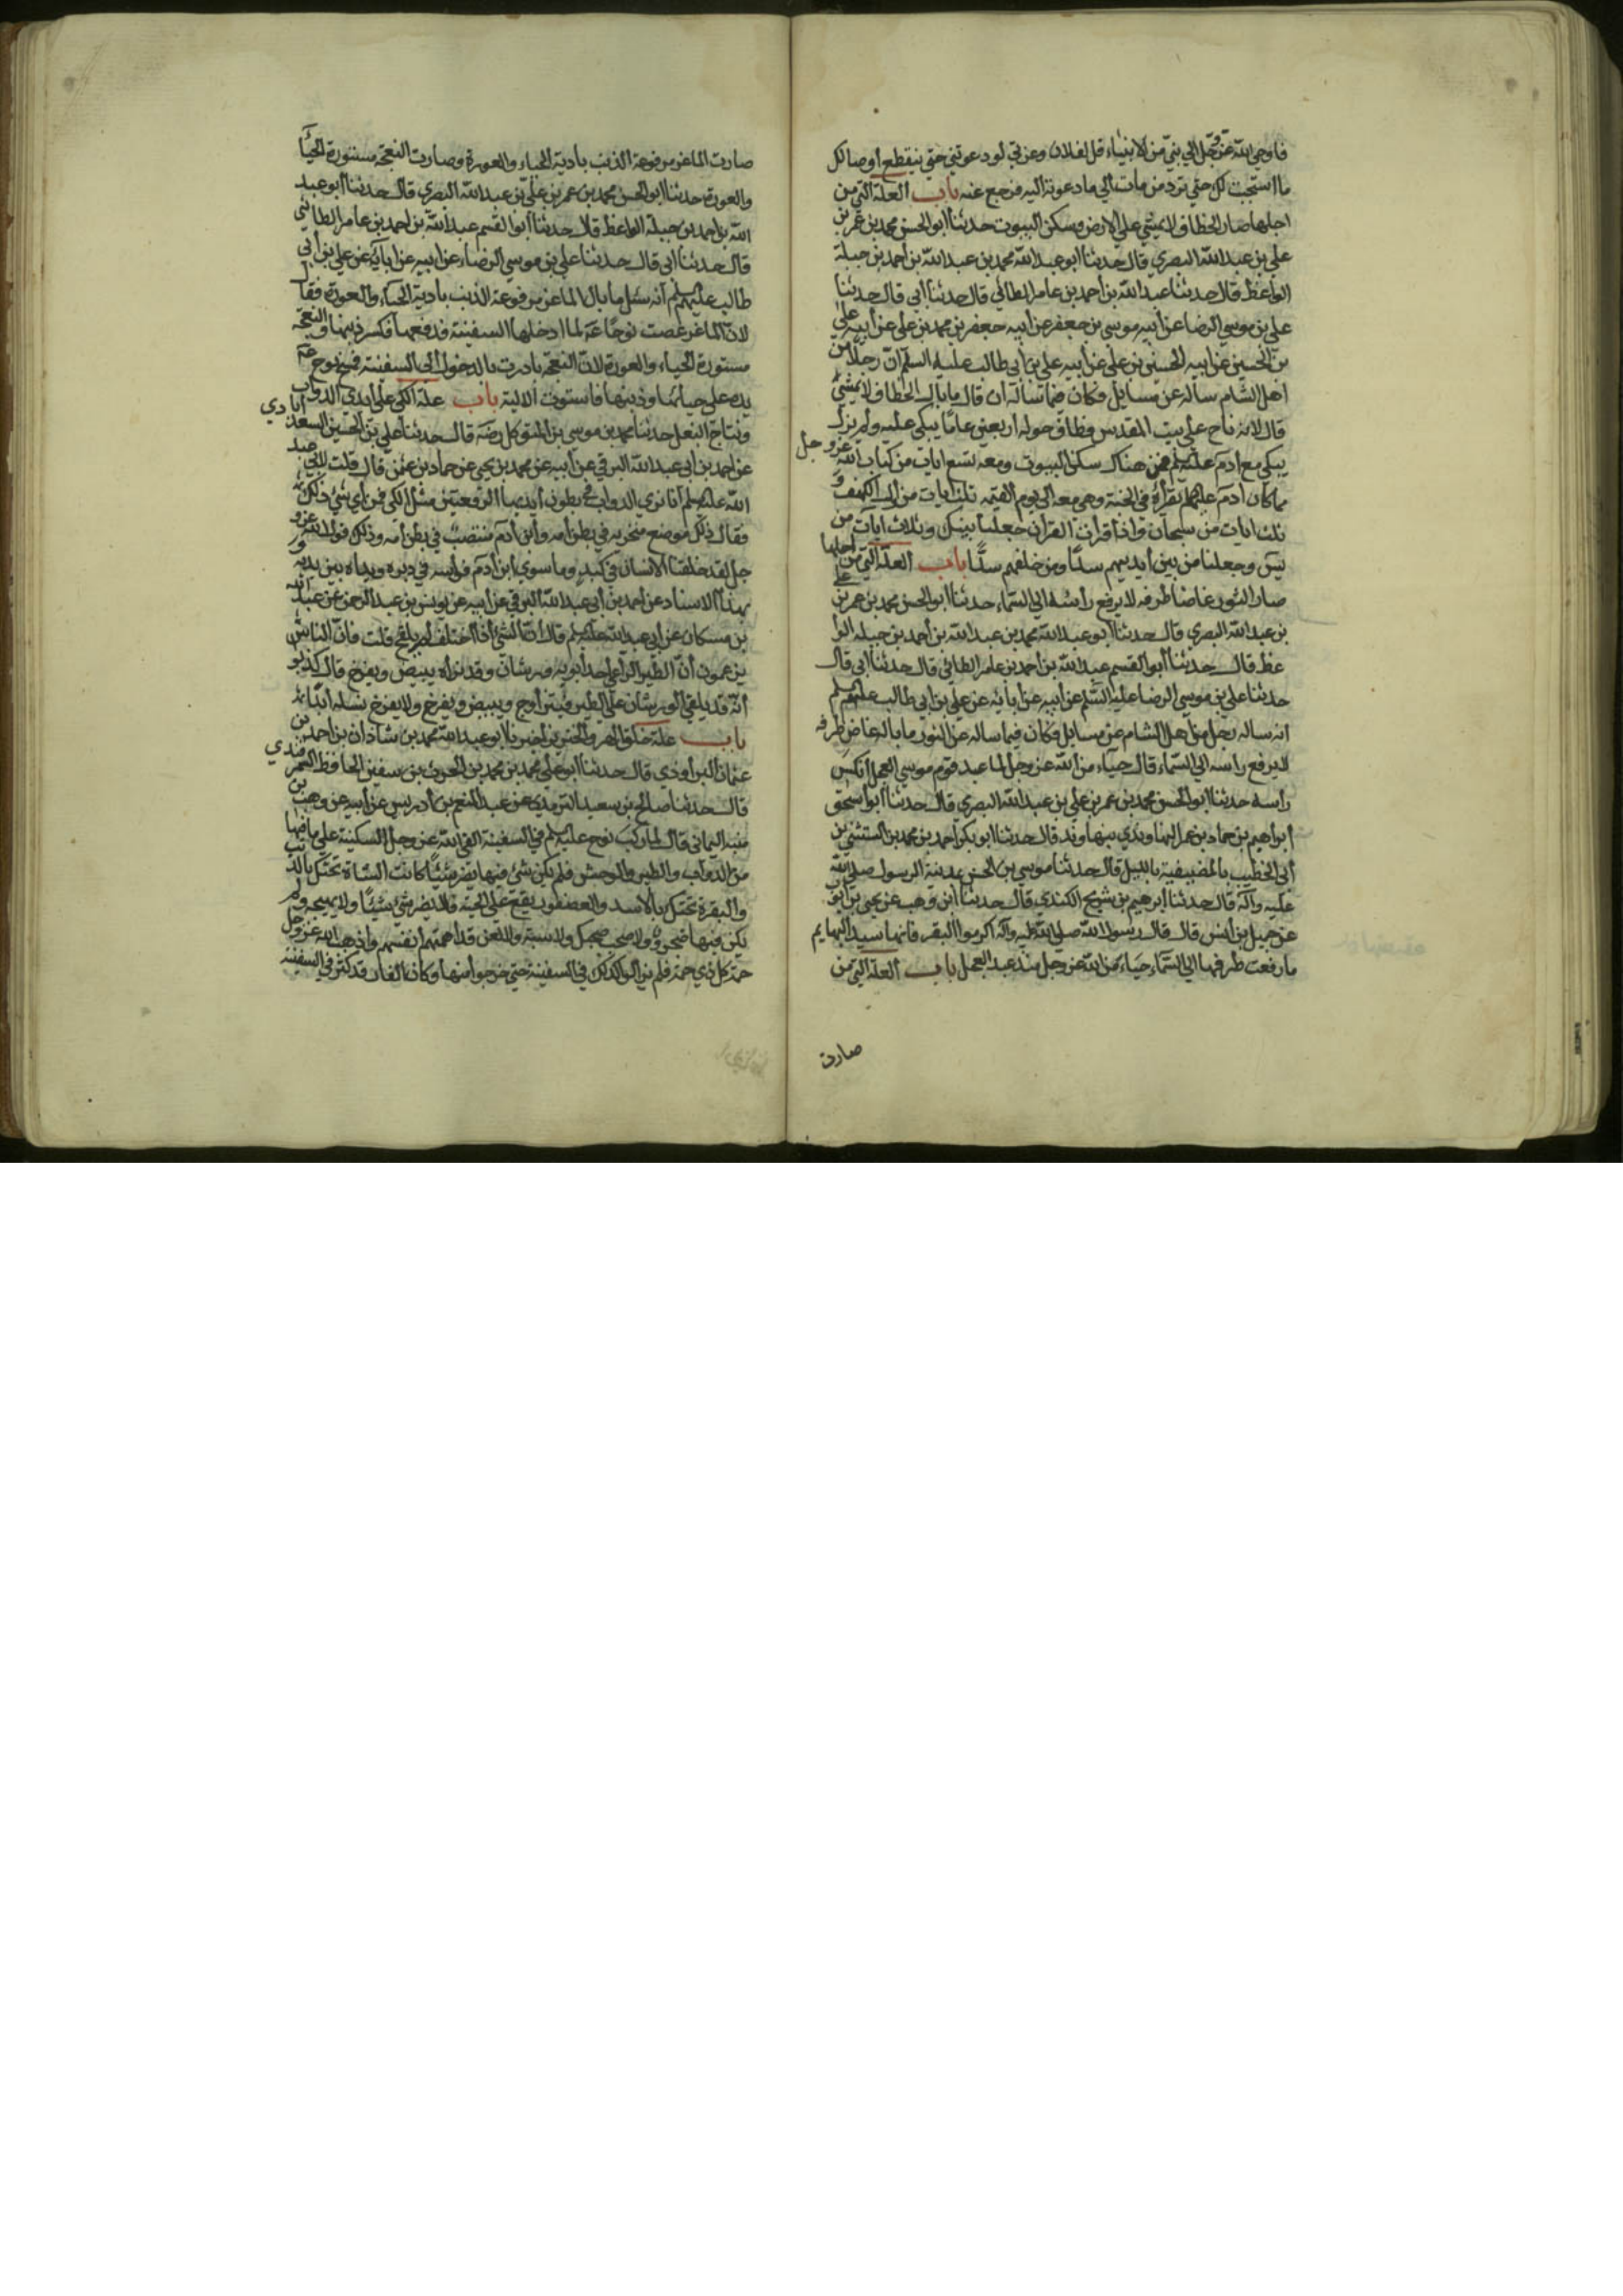 فاوحي الله عز وجل الي نبي من الانبياء قل لفلان وعزتي لو دعوتني حتي ينقطع اوصالك
ما استجبت لك حتي ترد من مات الي ما دعوته اليه فرجع عنه باب العلة التي من
اجلها صار الخطاف لا يمشي علي الارض وسكن البيوت حدثنا ابو الحسن محمد بن عمر بن
علي بن عبد الله البصري قال حدثنا ابو عبد الله محمد بن عبد الله بن احمد بن جبلة
الواعظ قال حدثنا عبد الله بن احمد بن عامر الطائي قال حدثنا ابي قال حدثنا
علي بن موسي الرضا عن ابيه موسي بن جعفر عن ابيه جعفر بن محمد بن علي عن ابيه علي
بن الحسين عن ابيه الحسين بن علي عن ابيه علي بن ابي طالب عليه السلم ان رجلا من
اهل الشام ساله عن مسايل فكان فيما ساله ان قال ما بال الخطاف لا يمشي
قال لانه ناح علي بيت المقدس فطاف حوله اربعين عاما يبكي عليه ولم يزل
يبكي مع ادم عليه السلم فمن هناك سكن البيوت ومعه تسع ايات من كتاب الله عز وجل
مما كان ادم عليه السلم يقرأه في الجنة وهي معه الي يوم القيمة ثلث ايات من اول الكهف و
ثلث ايات من سبحان واذا قرات القران جعلنا بينك وثلاث ايات من
يس وجعلنا من بين ايديهم سدا ومن خلفهم سدا باب العلة التي من اجلها
صار الثور غاضا طرفه لا يرفع رأسه الي السماء حدثنا ابو الحسن محمد بن عمر بن علي
بن عبد الله البصري قال حدثنا ابو عبد الله محمد بن عبد الله بن احمد بن جبله الوا
عظ قال حدثنا ابو القسم عبد الله بن احمد بن عامر الطائي قال حدثنا ابي قال
حدثنا علي بن موسي الرضا عليه السلم عن ابيه عن ابائه عن علي بن ابي طالب عليهم السلم
انه ساله رجل من اهل الشام عن مسايل فكان فيما ساله عن الثور ما باله غاض طرفه
لا يرفع راسه الي السماء قال حياء من الله عز وجل لما عبد قوم موسي العجل انكس
راسه حدثنا ابو الحسن محمد بن عمر بن علي بن عبد الله البصري قال حدثنا ابو اسحق
ابراهيم بن حماد بن عمر النهاوندي بنهاوند قال حدثنا ابو بكر احمد بن محمد بن المستثني بن
ابي الخطيب بالمضيفية بالليل قال حدثنا موسي بن الحسن بمدينة الرسول صلي الله
عليه وآله قال حدثنا ابرهيم بن شريح الكندي قال حدثنا ابن وهب عن يحيي بن ايوب
عن جميل بن انس قال قال رسول الله صلي الله عليه وآله اكرموا البقر فانها سيد البهايم
ما رفعت طرفها الي السماء حياء من الله عز وجل منذ عبد العجل باب العلة التي من
صارت
صارت الماعز مرفوعة الذنب بادية الحياء والعورة وصارت النعجة مستورة الحيا
والعورة حدثنا ابو الحسن محمد بن عمر بن علي بن عبد الله البصري قال حدثنا ابو عبد
الله بن احمد بن جبلة الواعظ قال حدثنا ابو القسم عبد الله بن احمد بن عامر الطائي
قال حدثنا ابي قال حدثنا علي بن موسي الرضاء عن ابيه عن ابآئه عن علي بن ابي
طالب عليهم السلم انه سئل ما بال الماعز مرفوعة الذنب بادية الحياء والعورة فقال
لان الماعز عصت نوحا عم لما ادخلها السفينة فدفعها فكسر ذنبها والنعجة
مستورة الحياء والعورة لان النعجة بادرت بالدخول الي السفينة فمسح نوح عم
يده علي حيائها وذنبها فاستوت الالية باب علة الكي علي ايدي الدواب
ونتاج البغل حدثنا محمد بن موسي بن المتوكل رضه قال حدثنا علي بن الحسين السعدابادي
عن احمد بن ابي عبد الله البرقي عن ابيه عن محمد بن يحيي عن حماد بن عثمن قال قلت لابي عبد
الله عليه السلم انا نري الدواب في بطون ايديها الرقعتين مثل الكي فمن اي شئ ذلك
فقال ذلك موضع منخريه في بطن امه وابن ادم منتصب في بطن امه وذلك قول الله عز و
جل لقد خلقنا الانسان في كبد وما سوي ابن ادم فراسه في دبره ويداه بين يديه و
بهذا الاسناد عن احمد بن ابي عبد الله البرقي عن ابيه عن يونس بن عبد الرحمن عن عبد الله
بن مسكان عن ابي عبد الله عليه السلم قال ان الشئ اذا اختلف لم يلقح قلت فان الناس
يزعمون ان الطير الراعي احد ابويه ورشان وقد نراه يبيض ويفرخ قال كذبوا
انه قد يلقي الورشان علي الطير فيتزاوج ويبيض ويفرخ ولا يفرخ نسله ابدا
باب علة خلق الهر والخنزير اخبرنا ابو عبد الله محمد بن شاذان بن احمد بن
عثمان البراوذي قال حدثنا ابو علي محمد بن محمد بن الحرث بن سفين الحافظ السمرقندي
قال حدثنا صالح بن سعيد الترمذي عن عبد المنعم بن ادريس عن ابيه عن وهب بن
منبه اليماني قال لما ركب نوح عليه السلم في السفينة القي الله عز وجل السكينة علي ما فيها
من الدواب والطير والوحش فلم يكن شئ فيها يضر شيئا كانت الشاة تحتك بالذئب
والبقرة تحتك بالاسد والعصفور يقع علي الحية فلا يضر شئ شيئا ولا يهيجه ولم
يكن فيها ضجر ولا صخب ولا سبة ولا لعن قد اهمتهم انفسهم واذهب الله عز وجل
حمة كل ذي حمة فلم يزالوا كذلك في السفينة حتي خرجوا منها وكان الفار قد كثر في السفينة